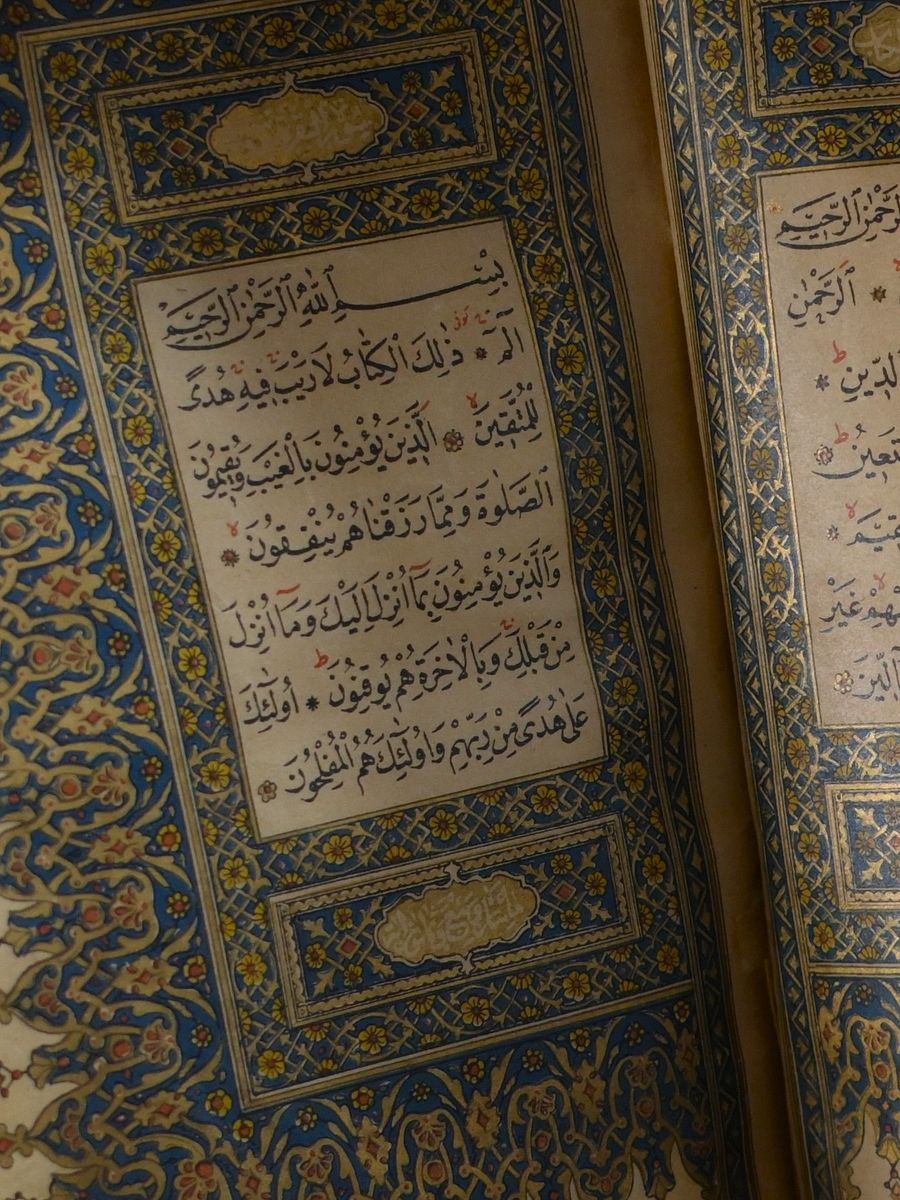 بِسْمِ ٱللّٰهِ ٱلرَّحْمٰنِ ٱلرَّحِيمِ
الٓمٓ * ذٰلِكَ الْكِتَابُ لَا رَيْبَ فِيهِ هُدًى
لِلْمُتَّقِينَ * الَّذِينَ يُؤْمِنُونَ بِالْغَيْبِ وَيُقِيمُونَ
ٱلصَّلٰوةَ وَمِمَّا رَزَقْنَاهُمْ يُنْفِقُونَ *
وَالَّذِينَ يُؤْمِنُونَ بِمَٓا اُنْزِلَ اِلَيْكَ وَمَٓا اُنْزِلَ
مِنْ قَبْلِكَ وَبِالْاٰخِرَةِ هُمْ يُوقِنُونَ * اُولٰٓئِكَ
عَلٰى هُدًى مِنْ رَبِّهِمْ وَاُولٰٓئِكَ هُمُ الْمُفْلِحُونَ *
ٱلرَّحِيمِ
ٱلرَّحْمٰنِ
غَيْرِ